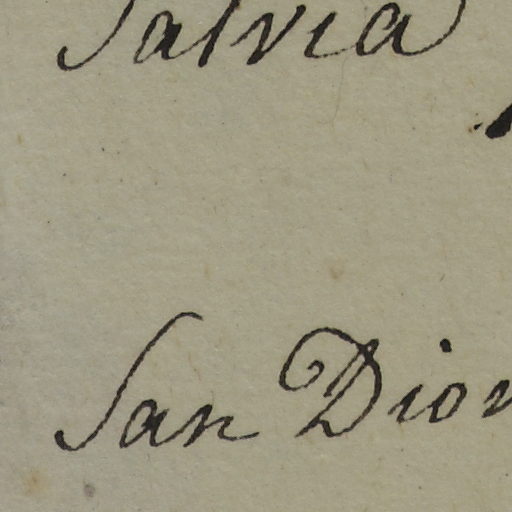 Salvia
San Dion